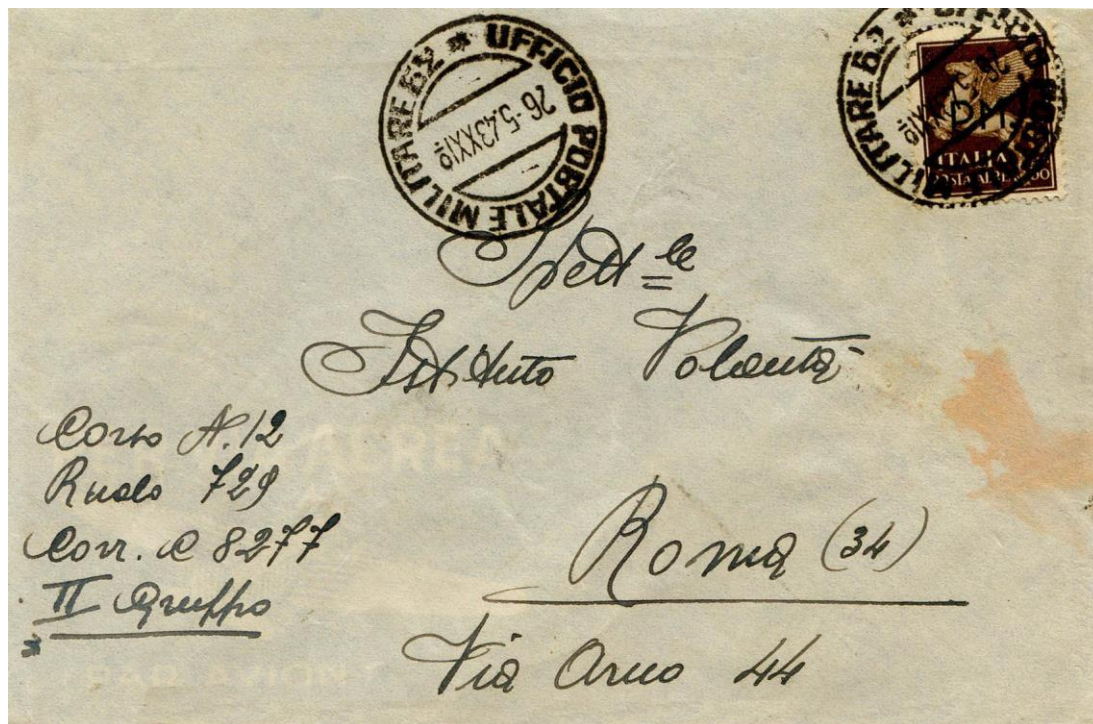 UFFICIO POSTALE MILITARE 62 *
26-5.43 XXI°
UFFICIO POSTALE MILITARE 62 *
PM
ITALIA
POSTA AEREA
Spett.le
Istituto Volontà
Corso N. 12
Ruolo 729
Corr. C 8277
II Gruppo
Roma (34)
Via Arno 44
AEREA
PAR AVION